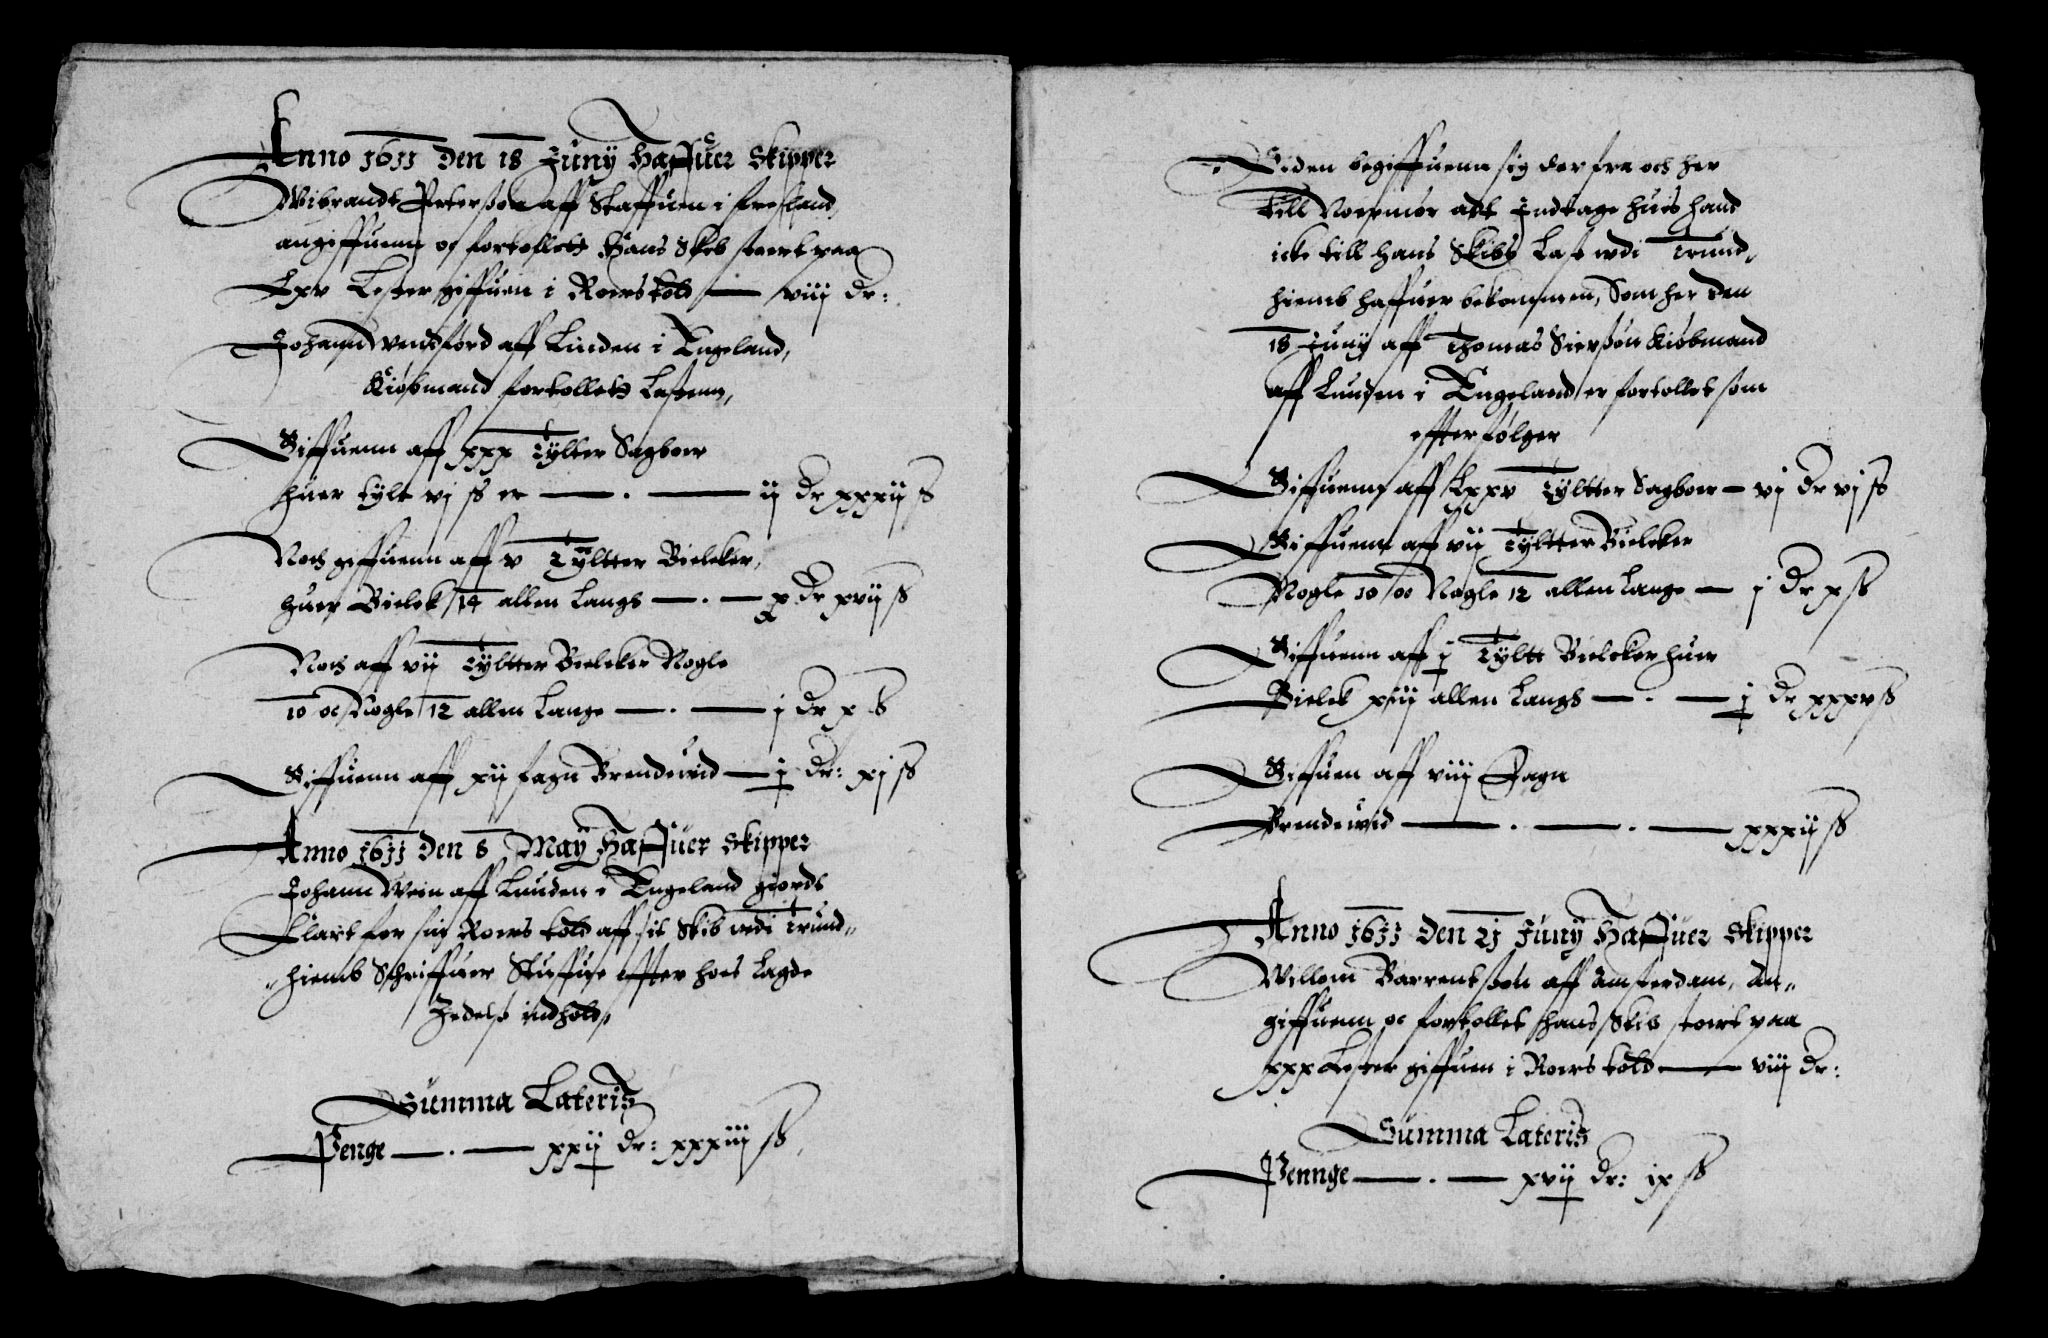 Anno 1611 den 18 Juny Haffuer Skipper
Wibrandt Peterßøn aff Staffuen i fresland,
angiffuenn oc fortolleth Hans Skib stoert paa
Lxv Lester giffuen i Roerstold — viij dr:
Johann Wendford aff Linden i Engeland,
Kiøbmand fortolleth Lastenn,
Giffuenn aff xxx Tyltter Sagboer
huer tylt vj ß er — . — ij dr xxxij ß
Noch giffuenn aff v Tyltter Bielcker,
huer Bielck 14 allen Langh — . — x dr xvij ß
Noch aff vij Tyltter Bielcker Nogle
10 oc Nogle 12 allen Lange — . — j dr x ß
Giffuenn aff xij fagn Brendeued — j dr: xj ß
Anno 1611 den 8 May Haffuer Skipper
Johann Wein aff Lunden i Engeland giordt
Klart for sin Roers told aff sit Skib vdi Trund-
hiemb Schriffuer Stuffue effter hoes Lagde
Zedelß indhold,
Summa Lateris
Penge — . — xxij dr: xxxiiij ß
Siden begiffuenn sig der fra och her
till Norpmør att Indtage huis hand
icke till hans Skibs Last vdi Trund-
hiemb haffuer bekommen, Som her den
18 Juny aff Thomas Sierßøn Kiøbmand
aff Lunden i Engeland er fortollet som
effter følger
Giffuenn aff Lxxv Tyltter Sagboer — vj dr vj ß
Giffuenn aff vij Tyltter Bielcker
Nogle 10 oc Nogle 12 allen Lange — j dr x ß
Giffuenn aff j Tyltt Bielcker huer
Bielck xiiij allen Langh — . — j dr xxxv ß
Giffuen aff viij Fagn
Brendeued — . — . — xxxij ß
Anno 1611 den 21 Juny Haffuer Skipper
Willom Barrentßøn aff Amsterdam, An-
giffuenn oc fortollet hans Skib stoert paa
xxx Lester giffuen i Roers told — viij dr:
Summa Lateris
Pennge — . — xvij dr: ix ß